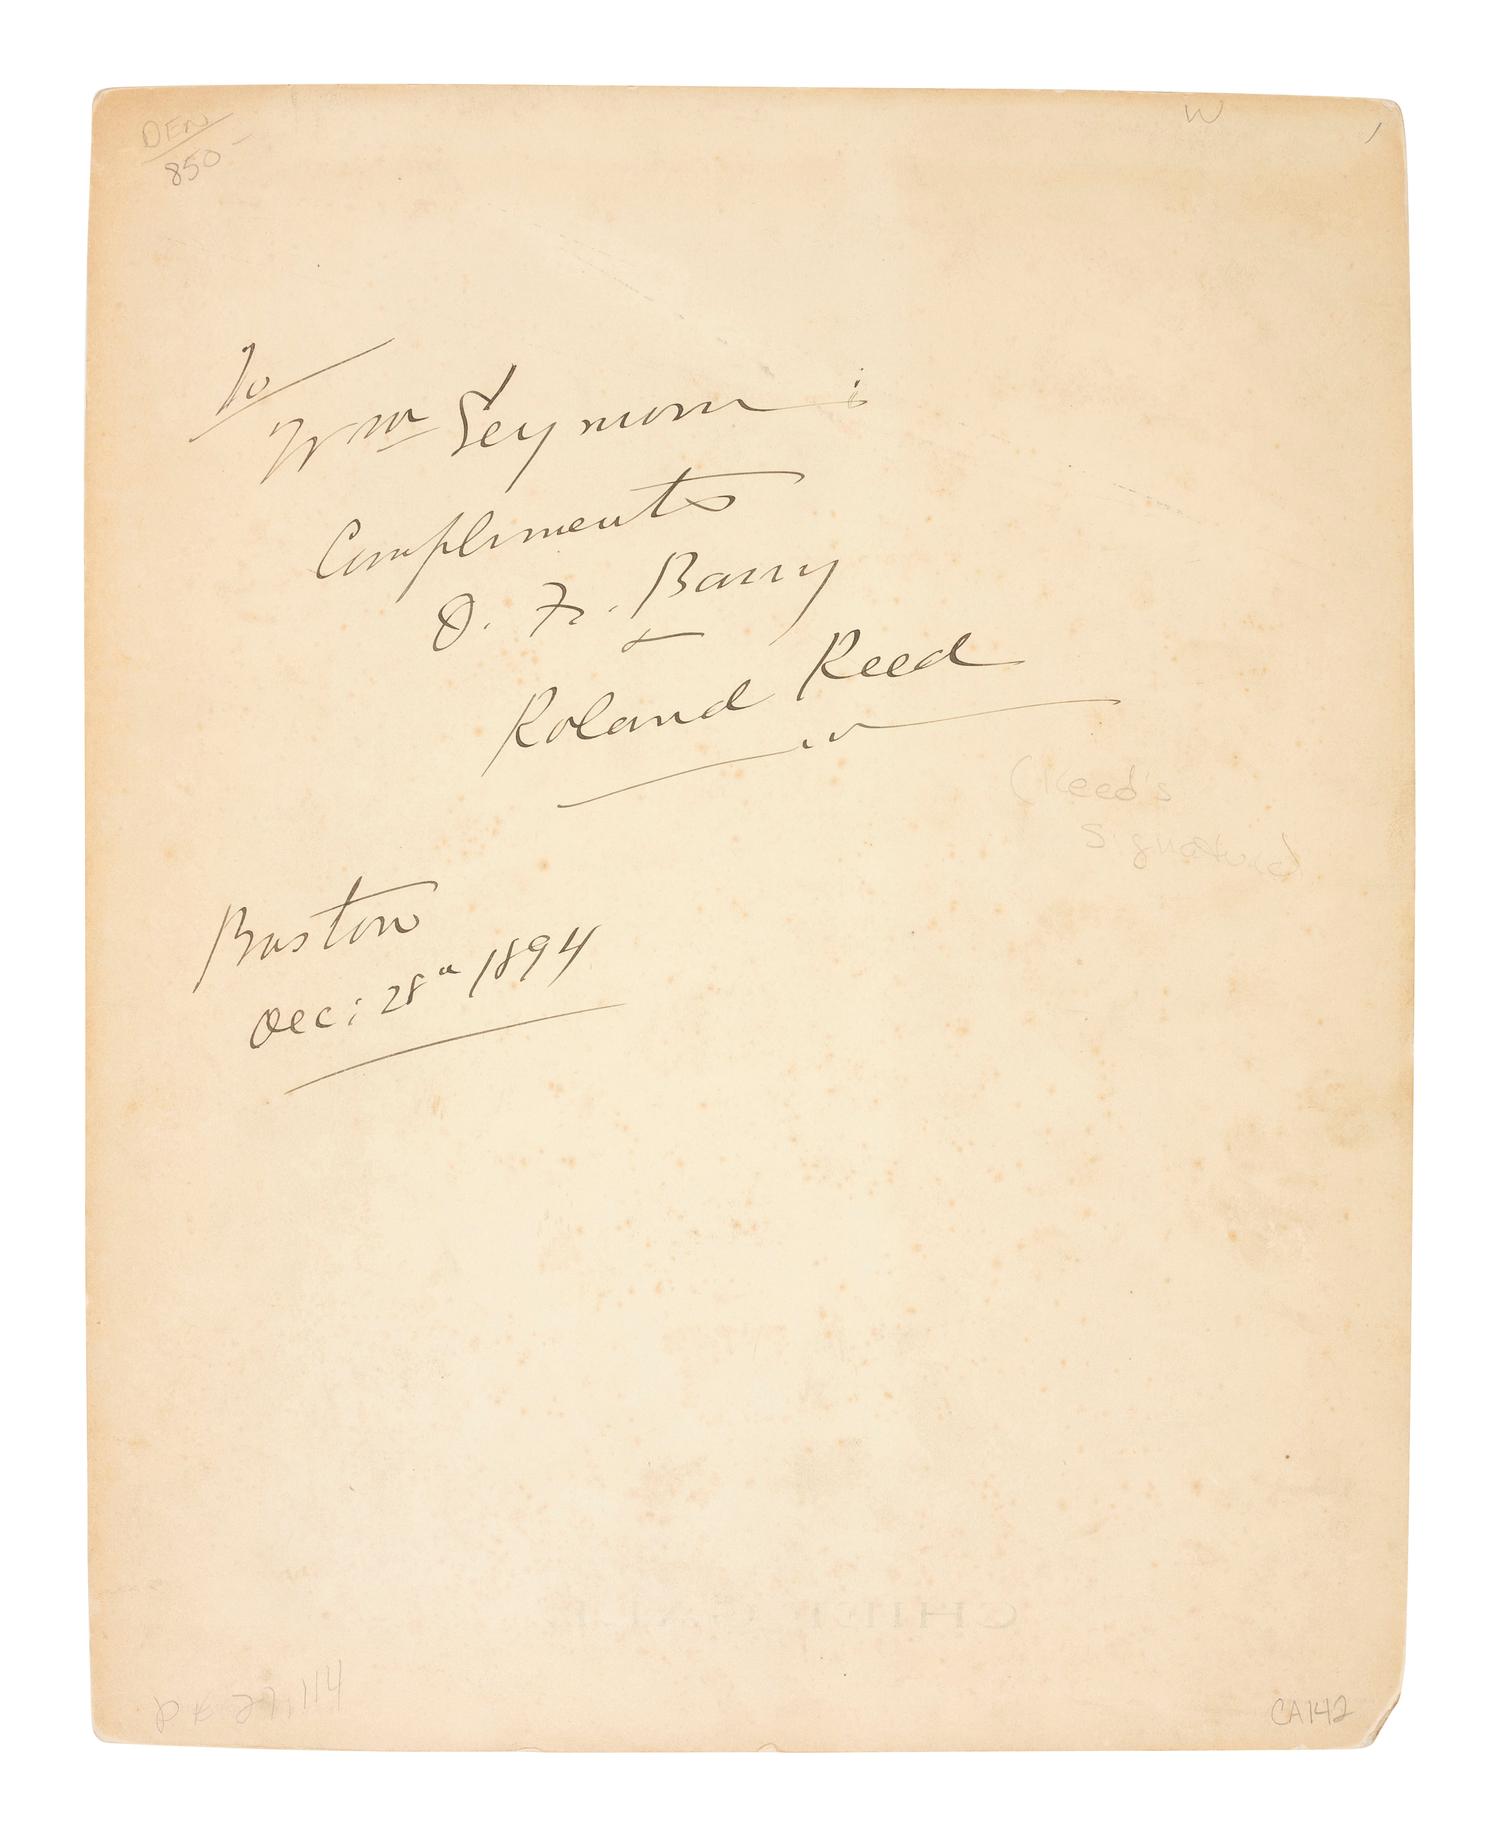 DEN
850-
W
To
Wm Seymour :
Compliments
D. F. Barry
+
Roland Reed
(Reed's
Signature)
Boston
Dec: 28th 1894
CHIEF GALL
27,114
CA142